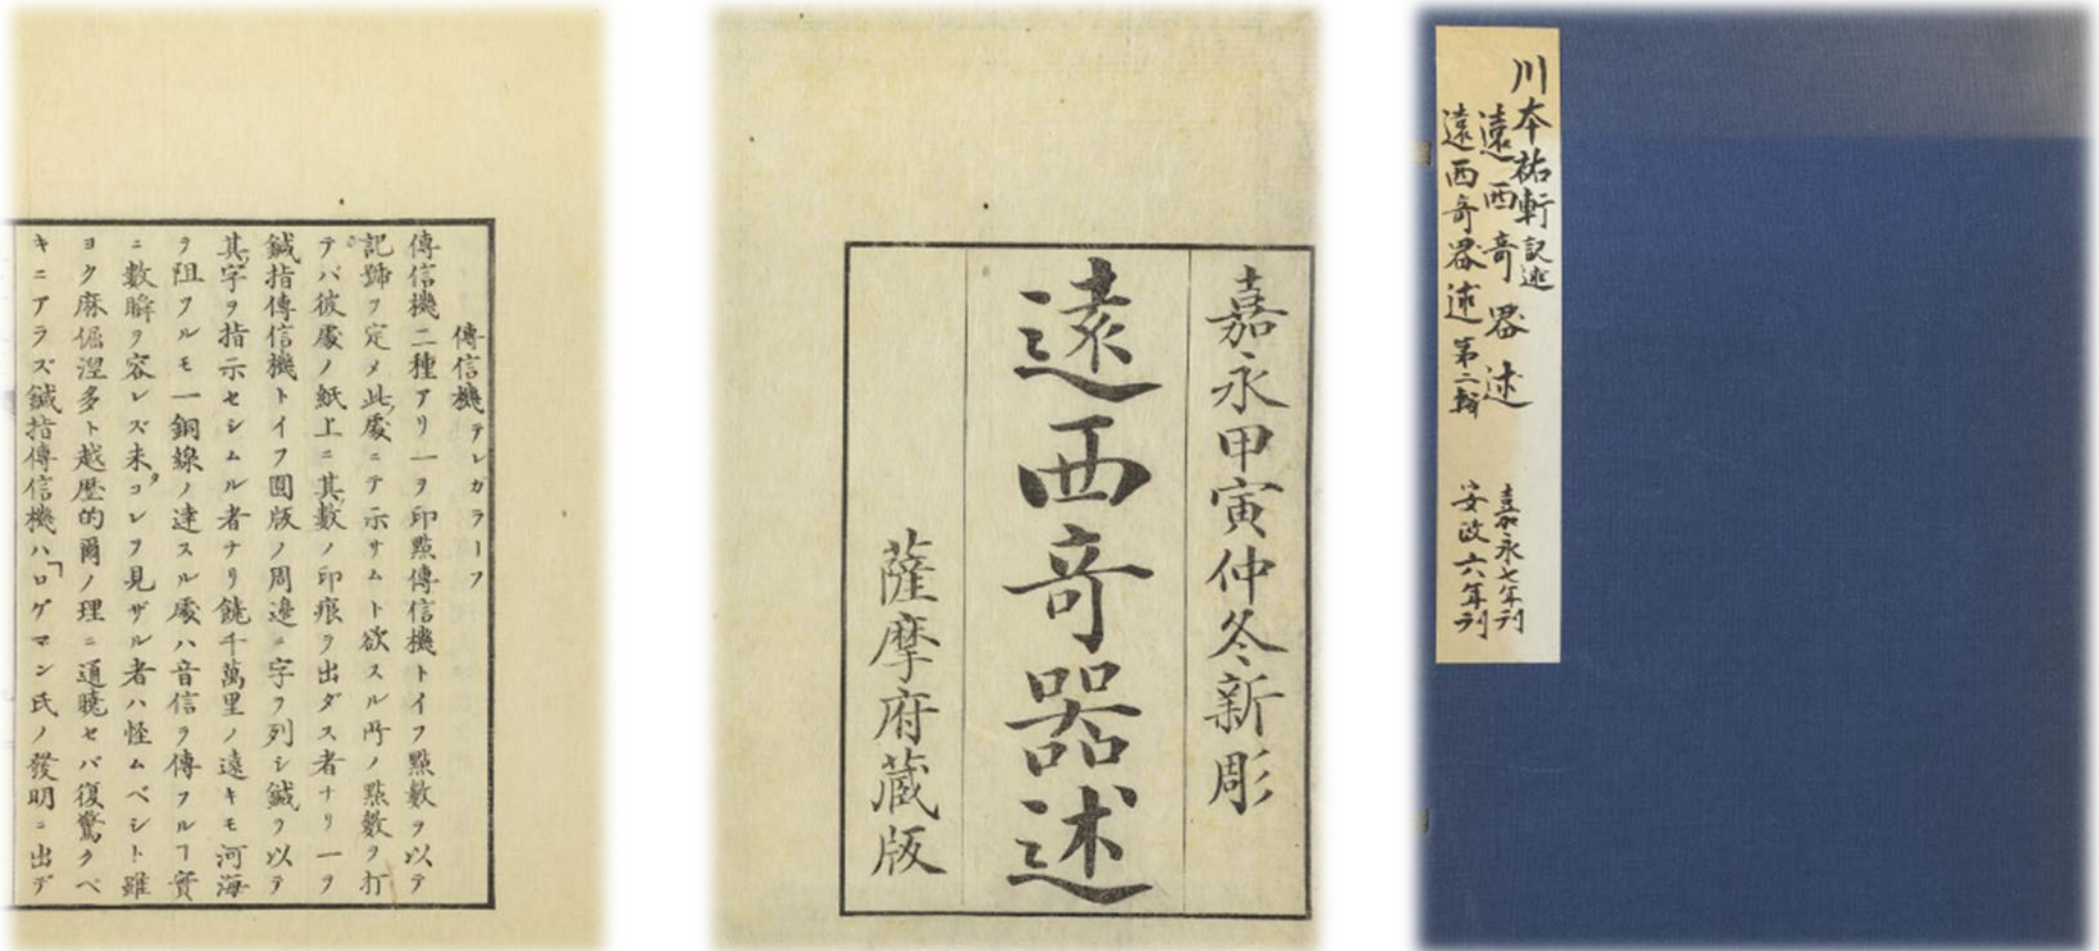 川本祐軒記述
遠西奇器述
遠西奇器述第二輯
嘉永七年刊
安政六年刊
嘉永甲寅仲冬新彫
遠西奇器述
薩摩府蔵版
傳信機テレガラーフ
傳信機二種アリ一ヲ印點傳信機トイフ點數ヲ以テ
記號ヲ定メ此處ニテ示サムト欲スル所ノ點數ヲ打
テバ彼處ノ紙上ニ其數ノ印痕ヲ出ダス者ナリ一ヲ
鍼指傳信機トイフ圓版ノ周邊ニ字ヲ列シ鍼ヲ以テ
其字ヲ指示セシムル者ナリ饒千萬里ノ遠キモ河海
ヲ阻フルモ一銅線ノ達スル處ハ音信ヲ傳フルヿ實
ニ數瞬ヲ容レズ未タコレヲ見ザル者ハ怪ムベシト雖
ヨク麻倔涅多ト越歷的爾ノ理ニ通曉セバ復驚クベ
キニアラズ鍼指傳信機ハ「ロゲマン氏ノ發明ニ出デ